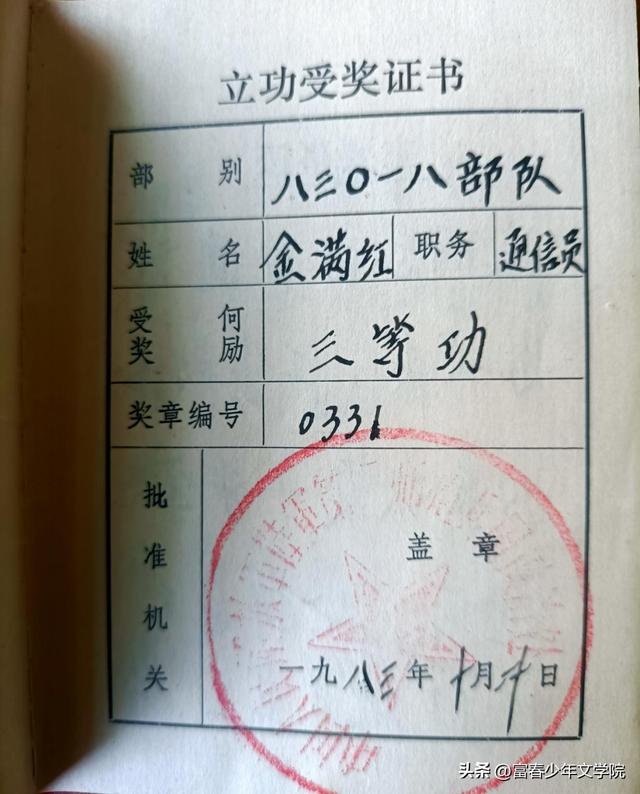 立功受奖证书
部别 八三〇一八部队
姓名 金满红 职务 通信员
受何奖励 三等功
奖章编号 0331
批准机关
盖章
一九八三年十月 日
头条 @富春少年文学院